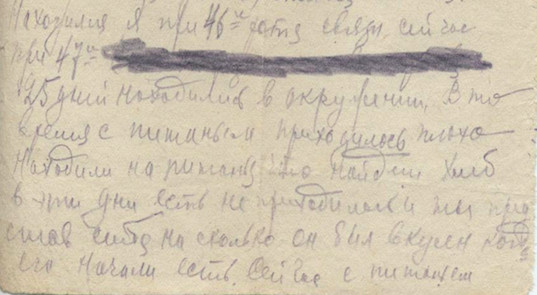 Находился я при 46й роте связи, сейчас
при 47й
25 дней находились в окружении. В то
время с питаньем приходилось плохо
Находили на питанье что найдем Хлеб
в эти дни есть не приходилось и ты пред
ставь себе на сколько он был вкусен когда
его начали есть. Сейчас с питанием